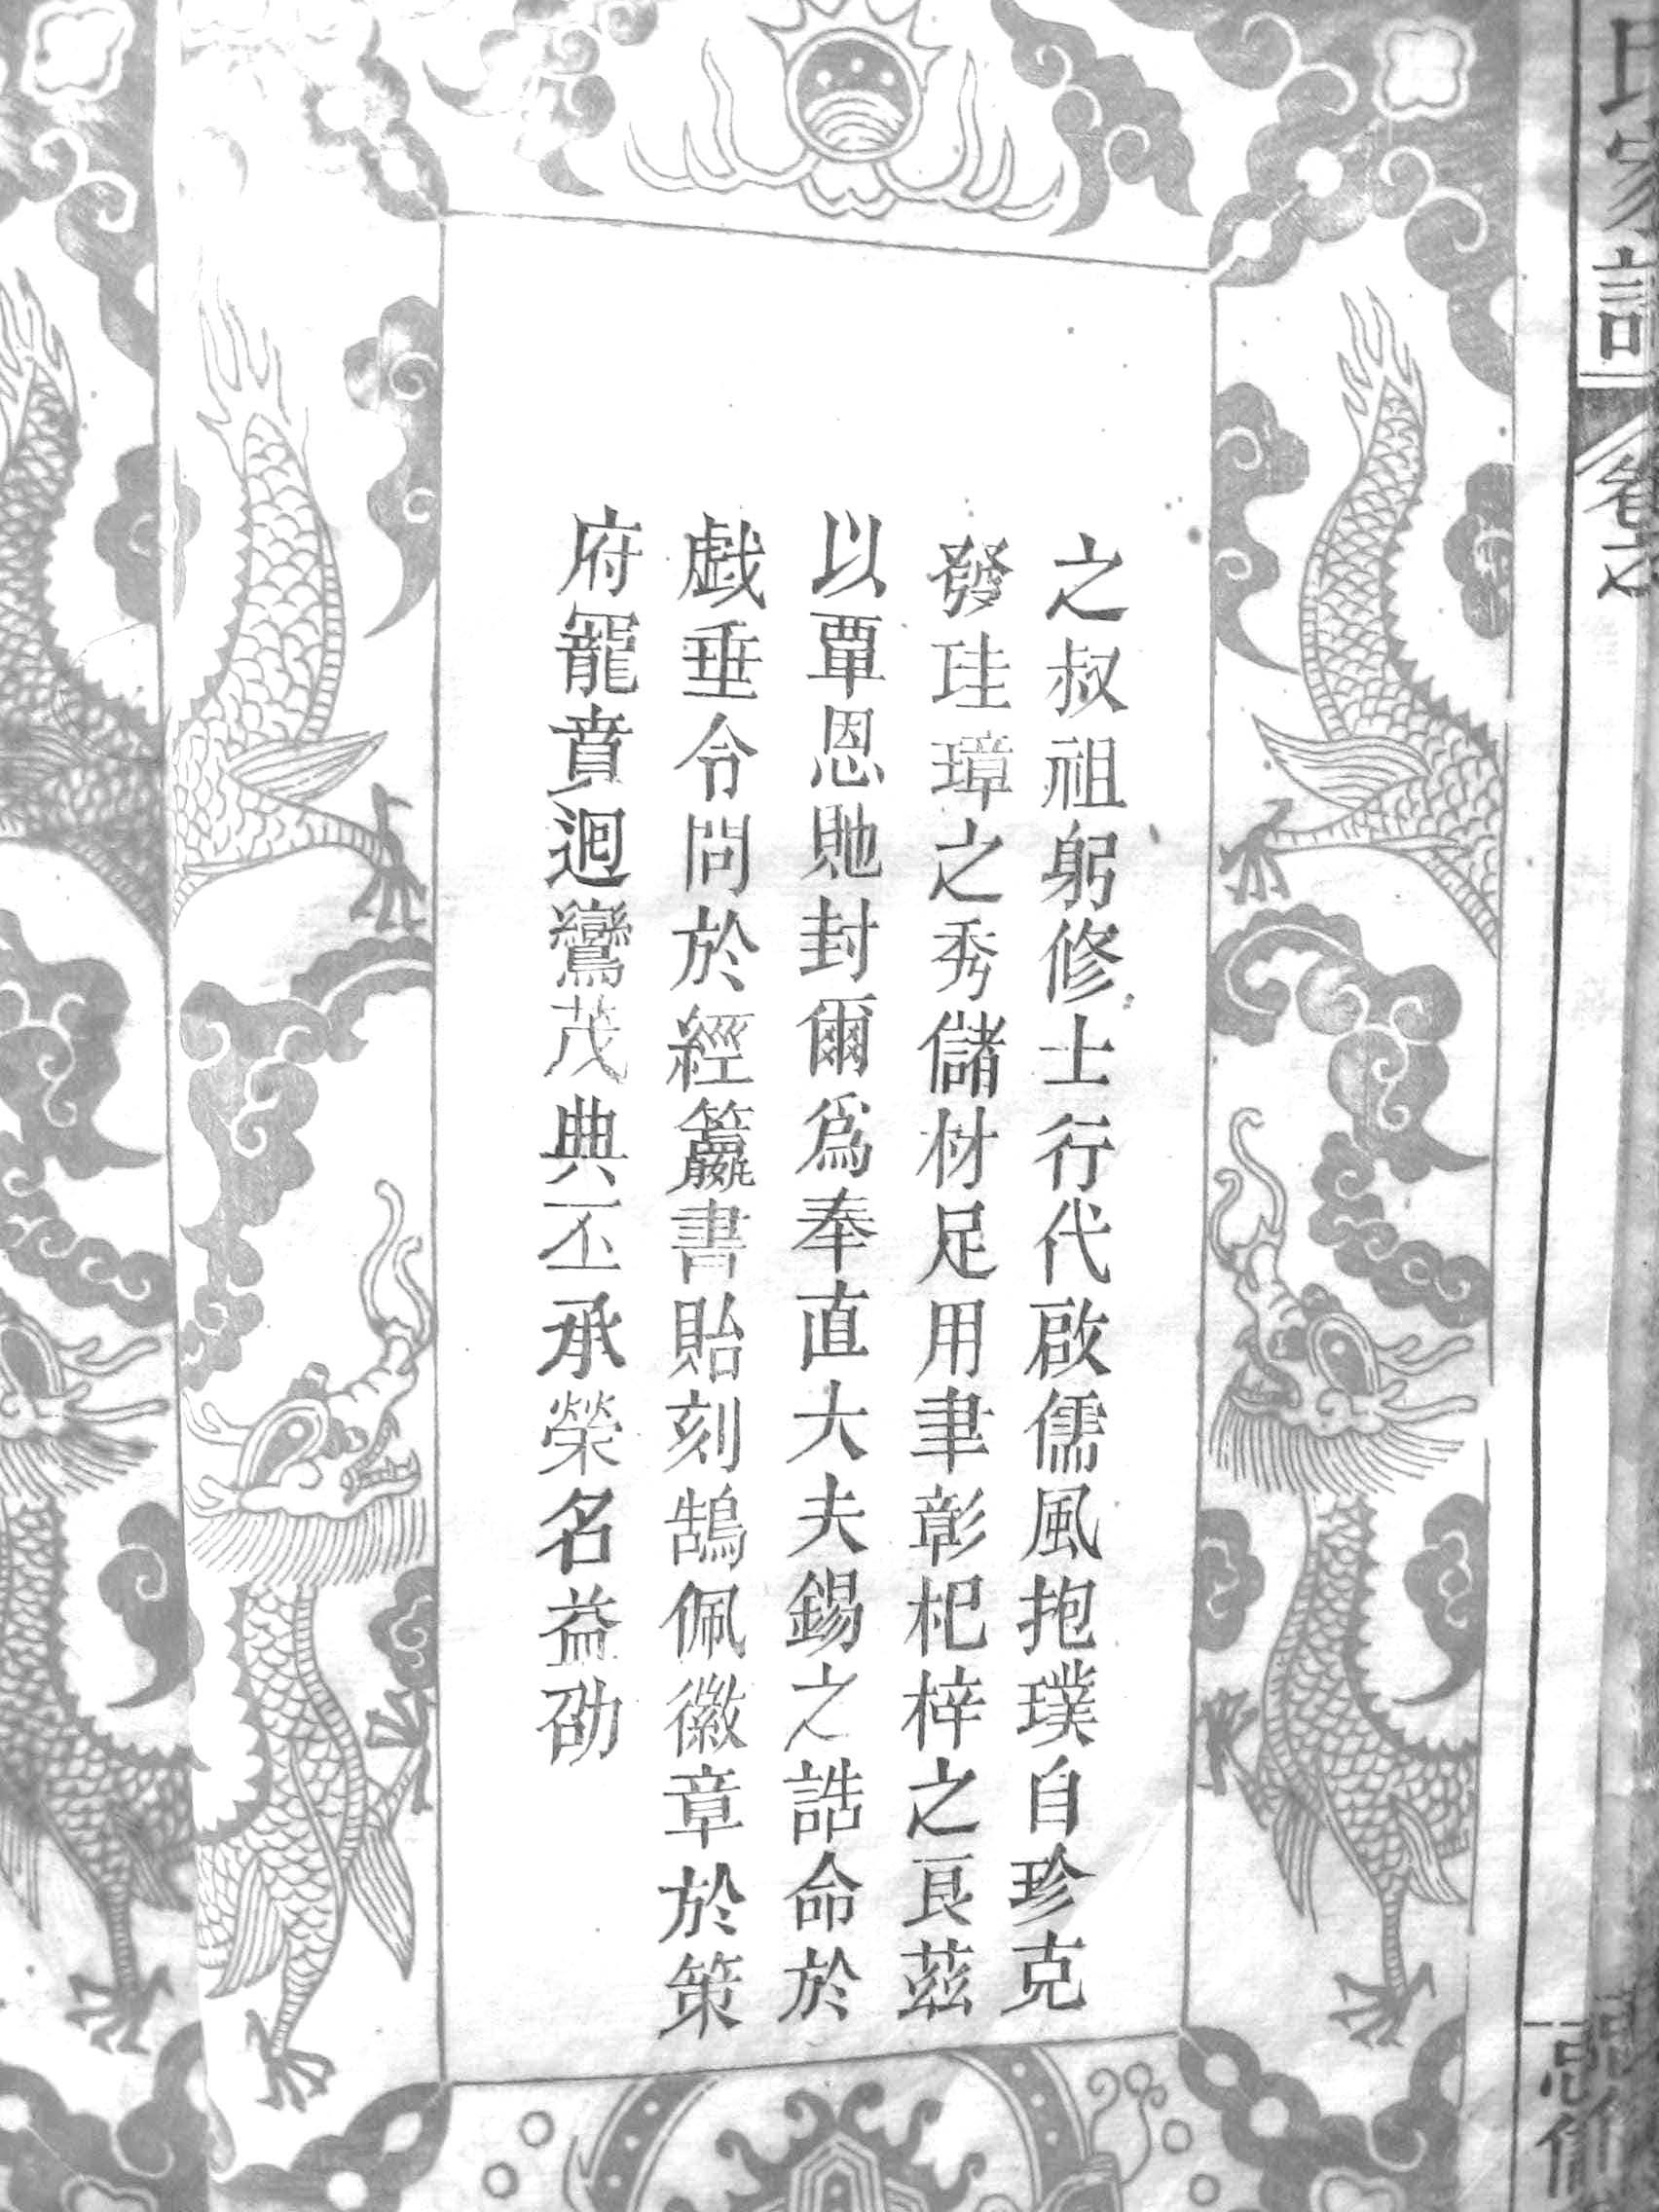 氏家譜
卷之
之叔祖躬修士行代啟儒風抱璞自珍克
發珪璋之秀儲材足用聿彰杞梓之良茲
以覃恩貤封爾為奉直大夫錫之誥命於
戲垂令問於經籯書貽刻鵠佩徽章於策
府寵賁迴鸞茂典丕承榮名益劭